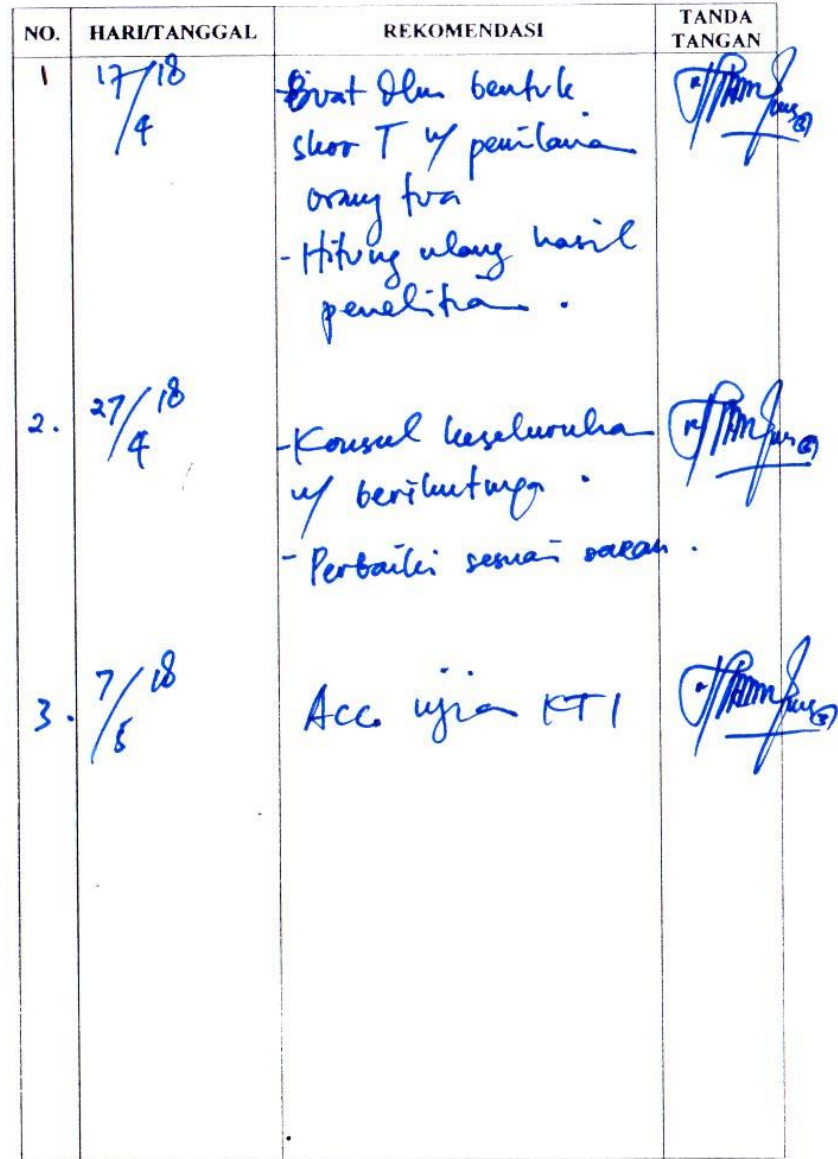 NO. HARI/TANGGAL REKOMENDASI TANDA TANGAN
1 17/4 18 - Buat dlm bentuk
skor T u/ penilaian
orang tua
- Hitung ulang hasil
penelitian .
2. 27/4 18 - Konsul keseluruhan
u/ berikutnya .
- Perbaiki sesuai saran .
3. 7/5 18 Acc. ujian KTI